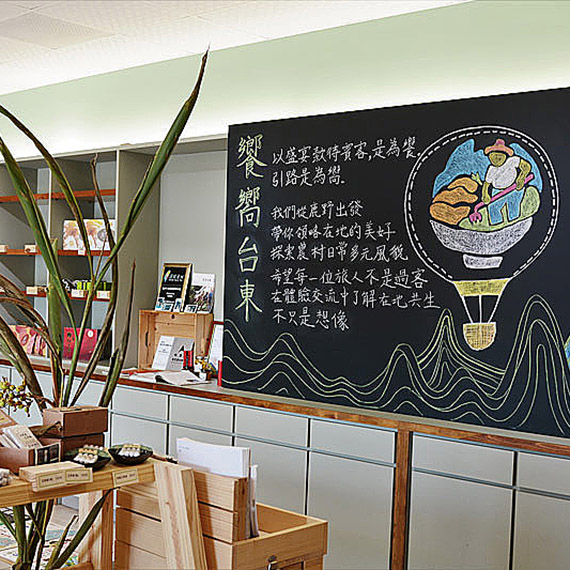 饗嚮台東
以盛宴款待賓客，是為饗，
引路是為嚮.
我們從鹿野出發
帶你領略在地的美好
探索農村日常多元風貌
希望每一位旅人不是過客
在體驗交流中了解在地共生
不只是想像